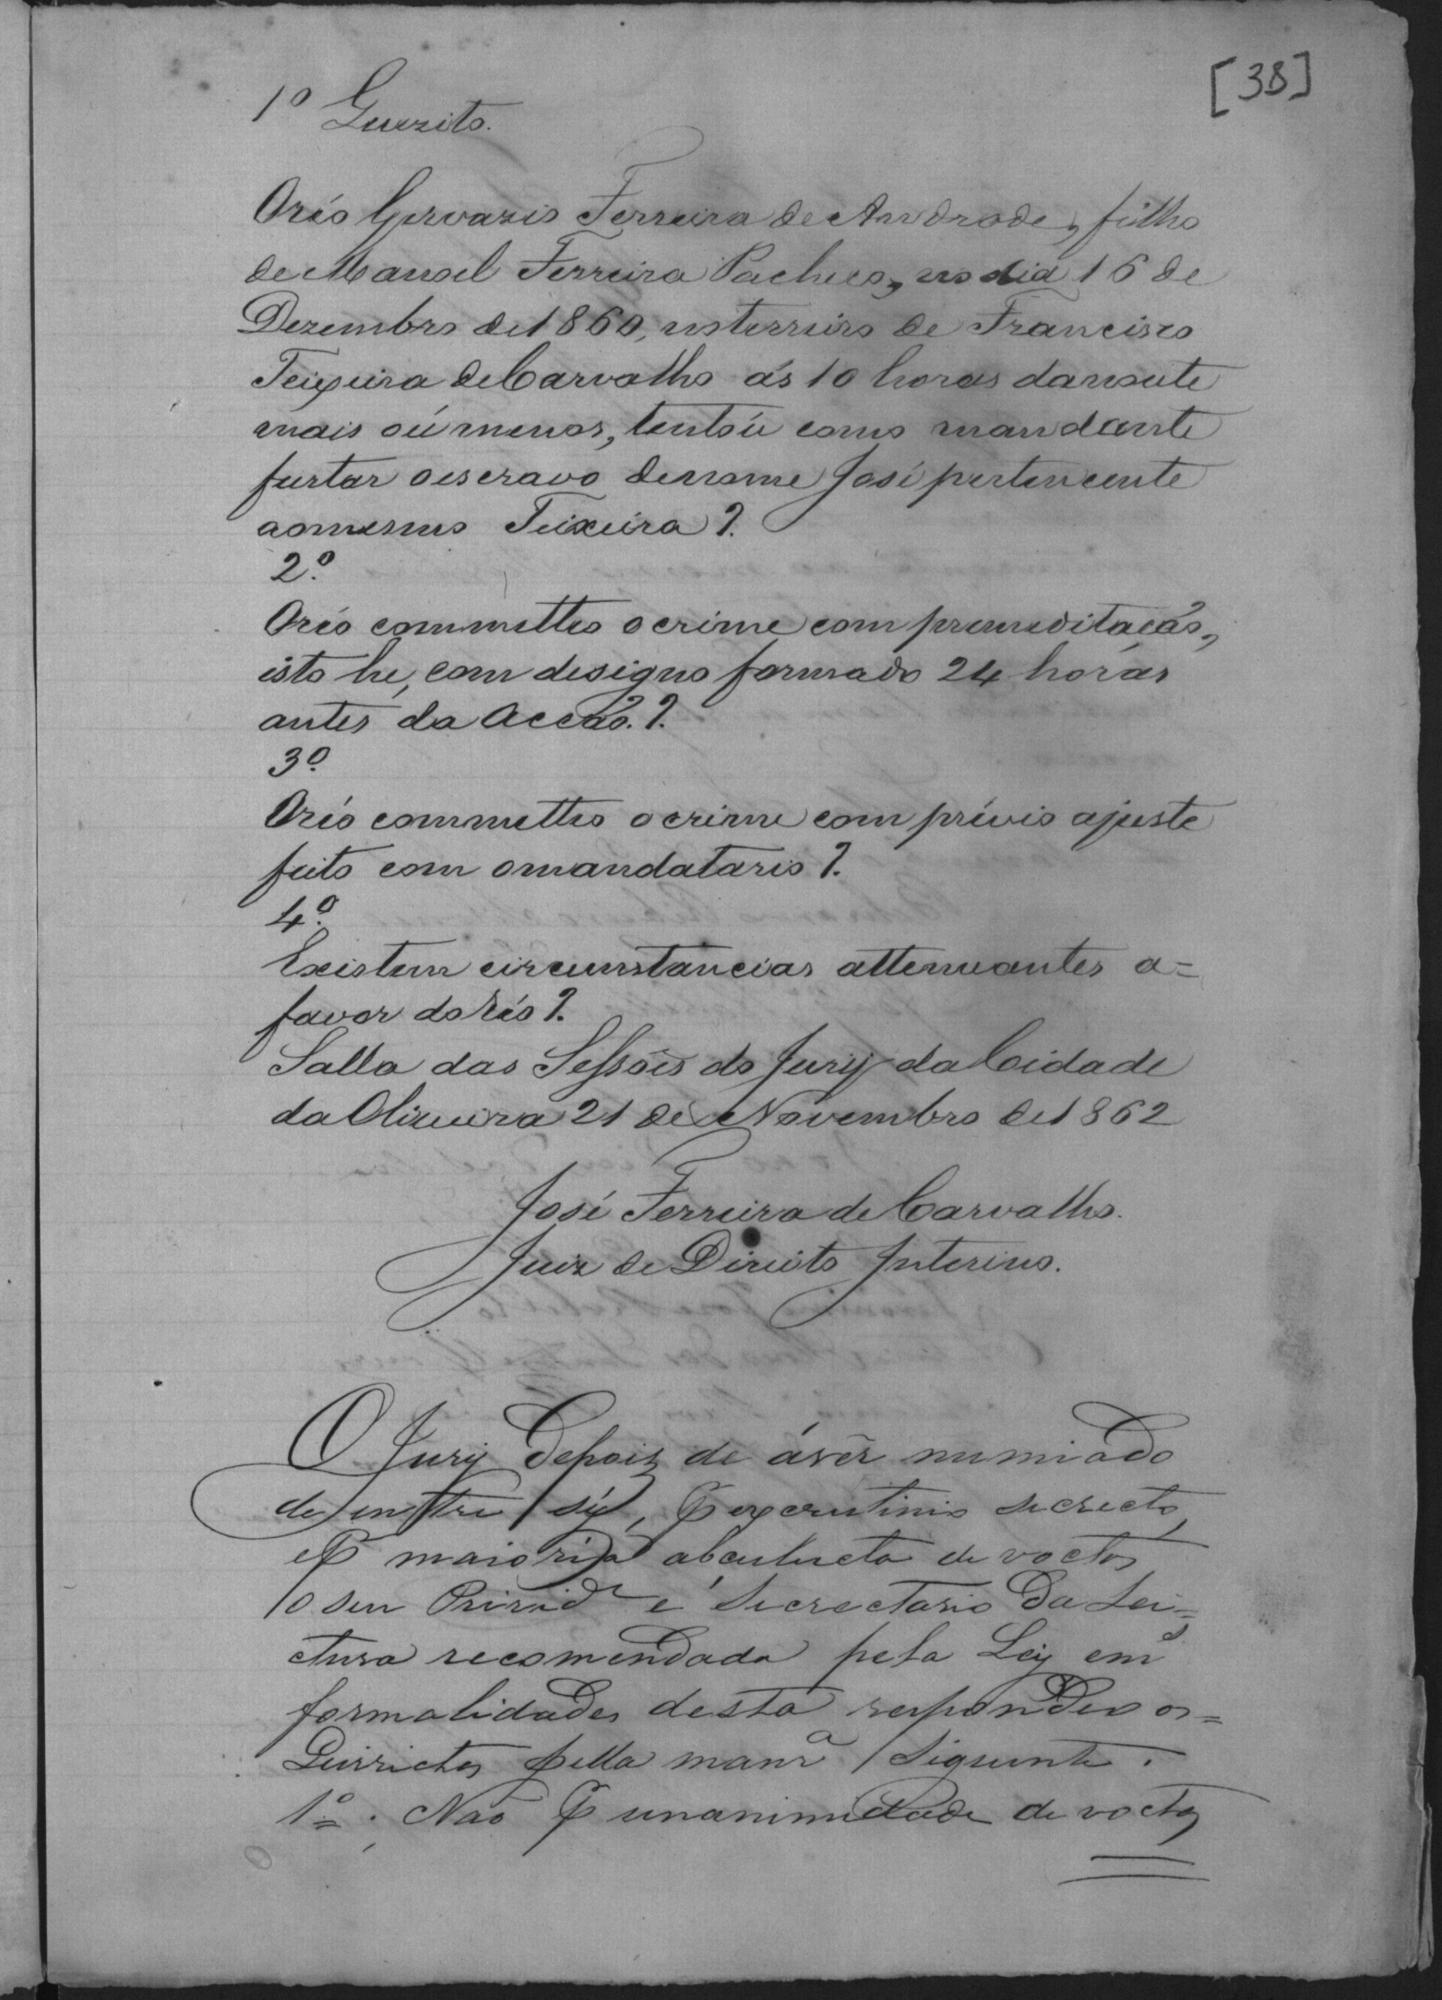 [38]
1º Quezito.
Oréo Gervazio Ferreira de Andrade, filho
de Manoel Ferreira Pacheco, no dia 16 de
Dezembro de 1860, noterreiro de Francisco
Teixeira de Carvalho ás 10 horas danoute
mais oú menos, tentoú como mandante
furtar oescravo denome José pertencente
aomesmo Teixeira?.
2º.
Oréo commetteo ocrime com premeditação,
isto he, com designo formado 24 horas
antes da Accão.?.
3º.
Oréo commetteo ocrime com prévio ajuste
feito com omandatario?.
4º.
Existem circumstancias attenuantes a=
favor do réo?.
Salla das Sessões do Jury da Cidade
da Oliveira 21 de Novembro de 1862
José Ferreira de Carvalho.
Juiz de Direito Interino.
O Jury depois de áver numiado
de entre sy, P excrutinio secrecto,
e P maioria abculucta de voctos
o seu Prizide é Secrectario da Lei=
ctura recomendada pela Ley em
formalidades desta respondeo os=
Quizictos pella manrª siguente.
1º. Não P unanimidade de voctos